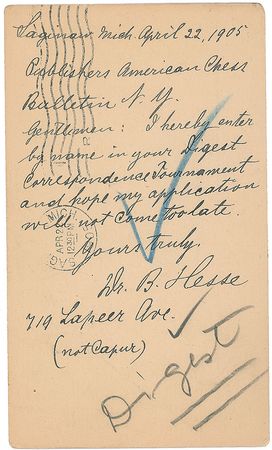 Saginaw Mich. April 22, 1905
Publishers American Chess
Bulletin N. Y.
Gentlemen: I hereby enter
by name in your Digest
Correspondence Tournament
and hope my application
will not come too late.
Yours truly,
Dr. B. Hesse
719 Lapeer Ave.
(not Capur)
Digest
MICH
APR 22
12 30 PM